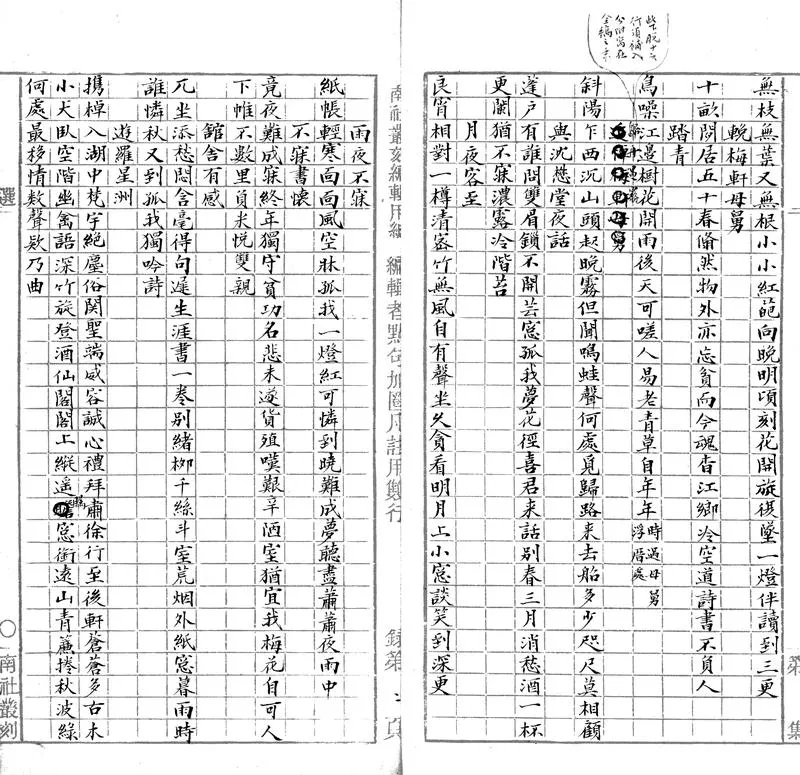 此下脫十六
行須補入
公附寫在
全稿之末
無枝無葉又無根小小紅葩向晚明頃刻花開旋復墜一燈伴讀到三更
輓梅軒母舅
十畝閒居五十春翛然物外亦忘貧而今魂杳江鄉冷空道詩書不負人
踏青
鳥噪江邊樹花開雨後天可嗟人易老青草自年年時過母舅浮厝處
斜陽乍西沉山頭起晚霧但聞鳴蛙聲何處覓歸路来去船多少咫尺莫相顧
與沈愁堂夜話
蓬戶有誰問雙眉鎖不開芸窓孤我夢花徑喜君来話別春三月消愁酒一杯
更闌猶不寐濃露冷階苔
月夜客至
良宵相對一樽清密竹無風自有聲坐久貪看明月上小窓談笑到深更
南社叢刻編輯用紙 編輯者點句加圈凡註用雙行
錄第 頁
雨夜不寐
紙帳輕寒面面風空牀孤我一燈紅可憐到曉難成夢聽盡蕭蕭夜雨中
不寐書懷
竟夜難成寐終年獨守貧功名悲未遂貨殖嘆艱辛陋室猶宜我梅花自可人
下帷不數里負米悅雙親
館舍有感
兀坐添愁悶含毫得句遲生涯書一卷別緒柳千絲斗室荒烟外紙窓暮雨時
誰憐秋又到孤我獨吟詩
遊羅星洲
攜棹入湖中梵宇絕塵俗関聖端威容誠心禮拜肅徐行至後軒蒼蒼多古木
小犬臥空階幽禽語深竹旋登酒仙閣閣上縱遙矚窓銜遠山青簾捲秋波綠
何處最移情欸聲欸乃曲
選
南社叢刻
第 集